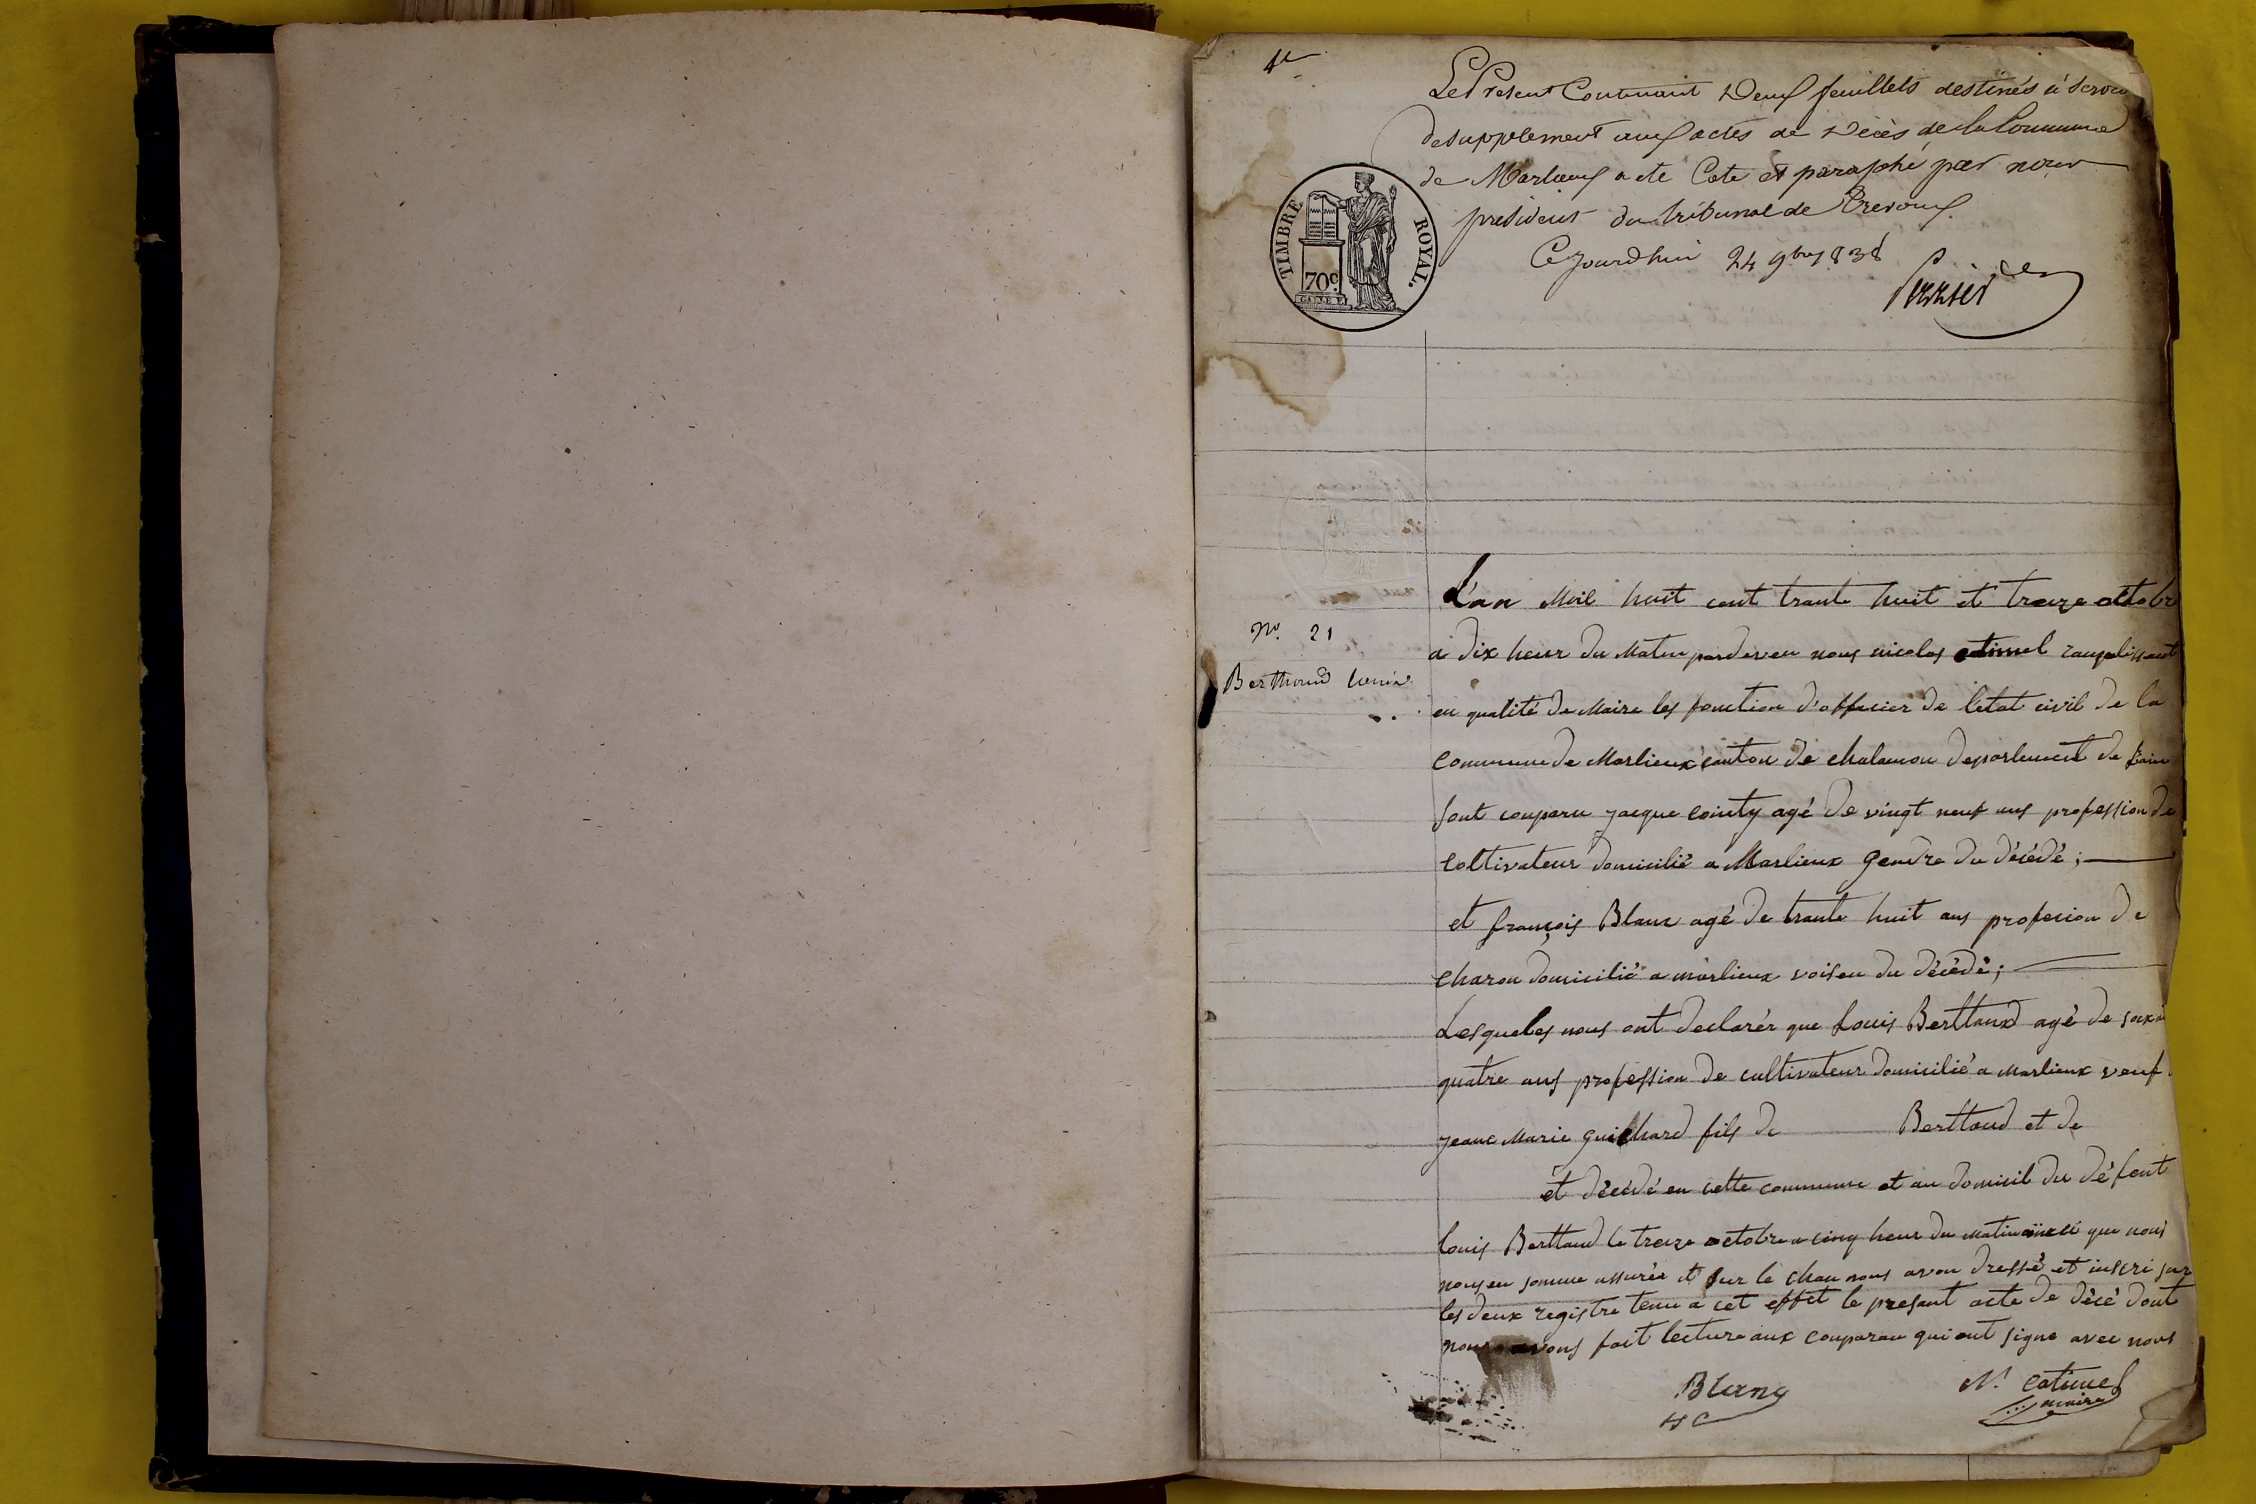 1er
Le Present Contenant Deux feuillets destinés à servir
de supplement aux actes de Décès de la Commune
de Marlieux a eté Coté et paraphé par nous
president du tribunal de Trevoux
Ce jourdhui 24 9bre 1838
Perrier
TIMBRE ROYAL.
70c.
L'an Mil huit cent trante huit et treize octobre
a dix heur du Matin pardeven nous nicolas catimel ranpelissant
en qualité de Maire les fonction d'officier de l'etat civil de la
N.° 21
Berthoud Louis
commune de Marlieux canton de chalamon departement de l'ain
sont conparu jacque cointy agé de vingt neuf ans profession de
coltivateur domicilié a Marlieux gendre du décédé;
et françois Blanc agé de trante huit ans profesion de
charon domicilié a marlieux voisen du décédé;
Lesqueles nous ont declarér que Louis Berttaud agé de soixante
quatre ans profession de cultivateur domicilié a Marlieux veuf
jeane Marie guichard fils de Berttaud et de
et décédé en cette commune et au domicil du défent
louis Berttaud le treize octobre a cinq heur du matin ainci que nous
nous en somme assurée et sur le chan nous avon dressé et inscri sur
les deux registre tenu a cet effet le presant acte de décé dont
nous avons fait lecture aux conparan qui ont signe avec nous
Blanc
N. catimel
maire